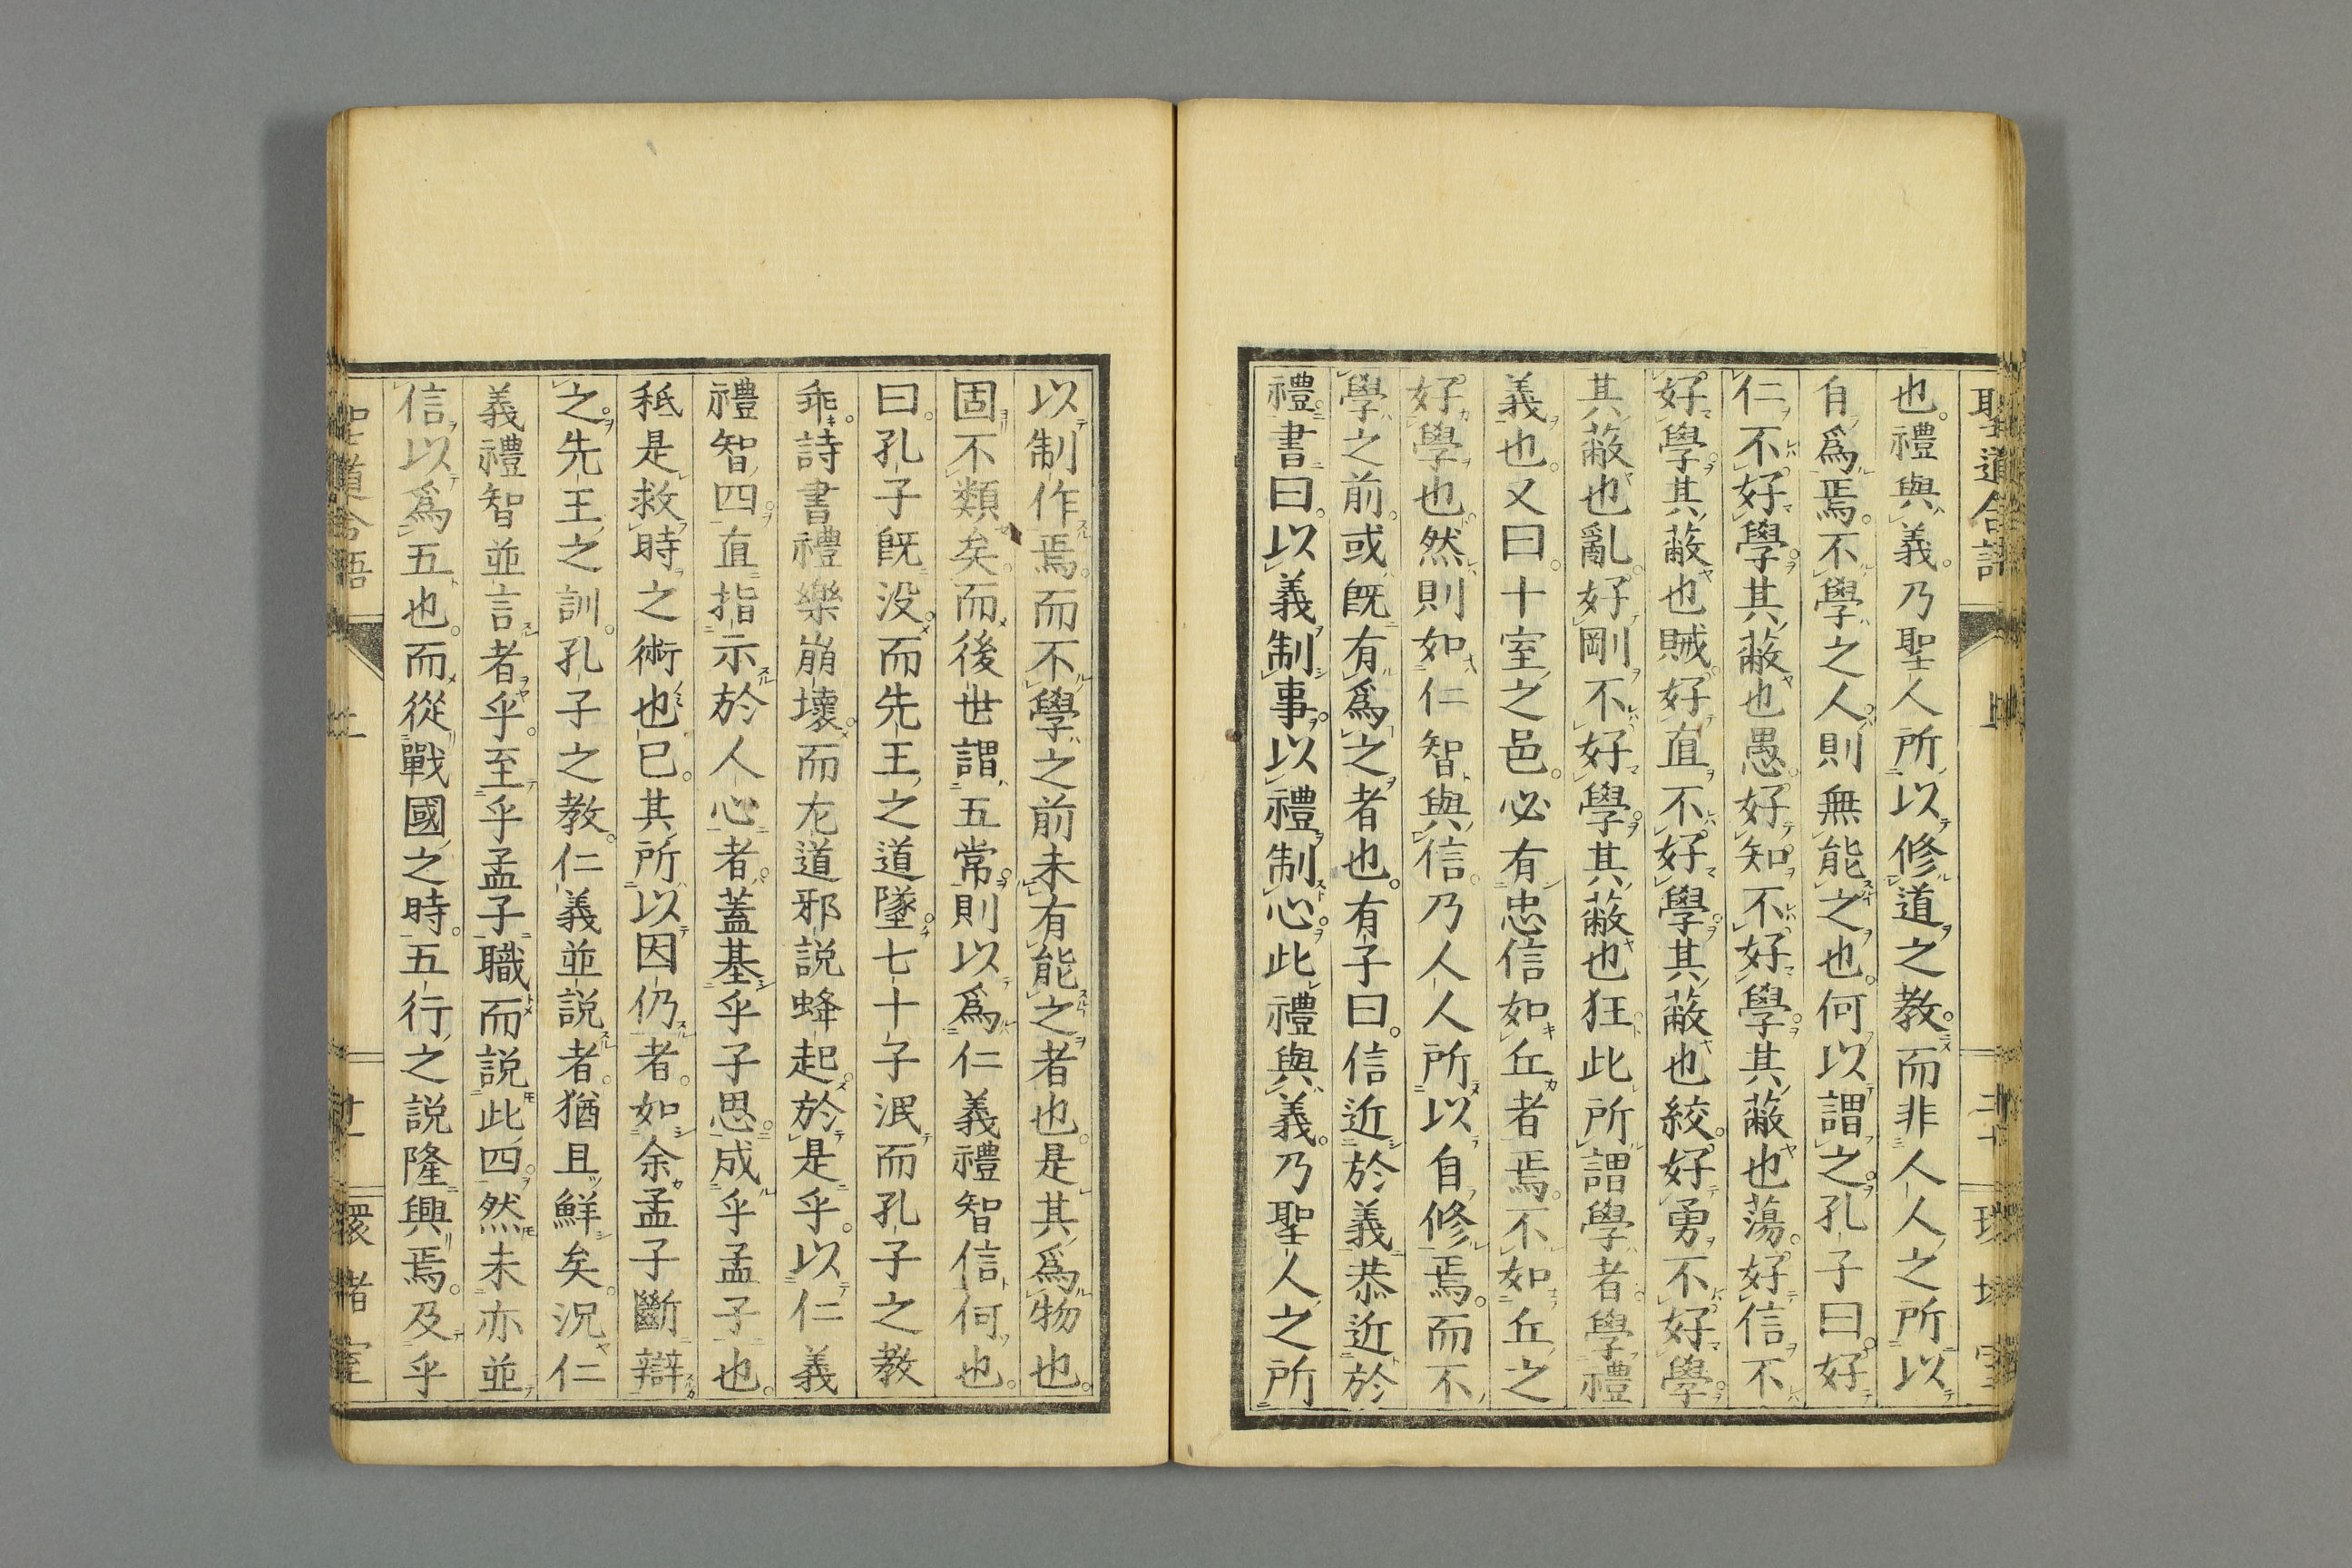 聖道合語 上 二十 環堵室
也禮與義乃聖人所以修道之教而非人人之所以
自爲焉不學之人則無能之也何以謂之孔子曰好
仁不好學其蔽也愚好知不好學其蔽也蕩好信不
好學其蔽也賊好直不好學其蔽也絞好勇不好學
其蔽也亂好剛不好學其蔽也狂此所謂學者學禮
義也又曰十室之邑必有忠信如丘者焉不如丘之
好學也然則如仁智與信乃人人所以自修焉而不
學之前或既有爲之者也有子曰信近於義恭近於
禮書曰以義制事以禮制心此禮與義乃聖人之所
以制作焉而不學之前未有能之者也是其爲物也
固不類矣而後世謂五常則以爲仁義禮智信何也
曰孔子既没而先王之道墜七十子泯而孔子之教
乖詩書禮樂崩壞而尨道邪説蜂起於是乎以仁義
禮智四直指示於人心者蓋基乎子思成乎孟子也
秖是救時之術也已其所以因仍者如余孟子斷辯
之先王之訓孔子之教仁義並説者猶且鮮矣況仁
義禮智並言者乎至乎孟子職而説此四然未亦並
信以爲五也而從戰國之時五行之説隆興焉及乎
聖道合語 上 廿一 環堵室